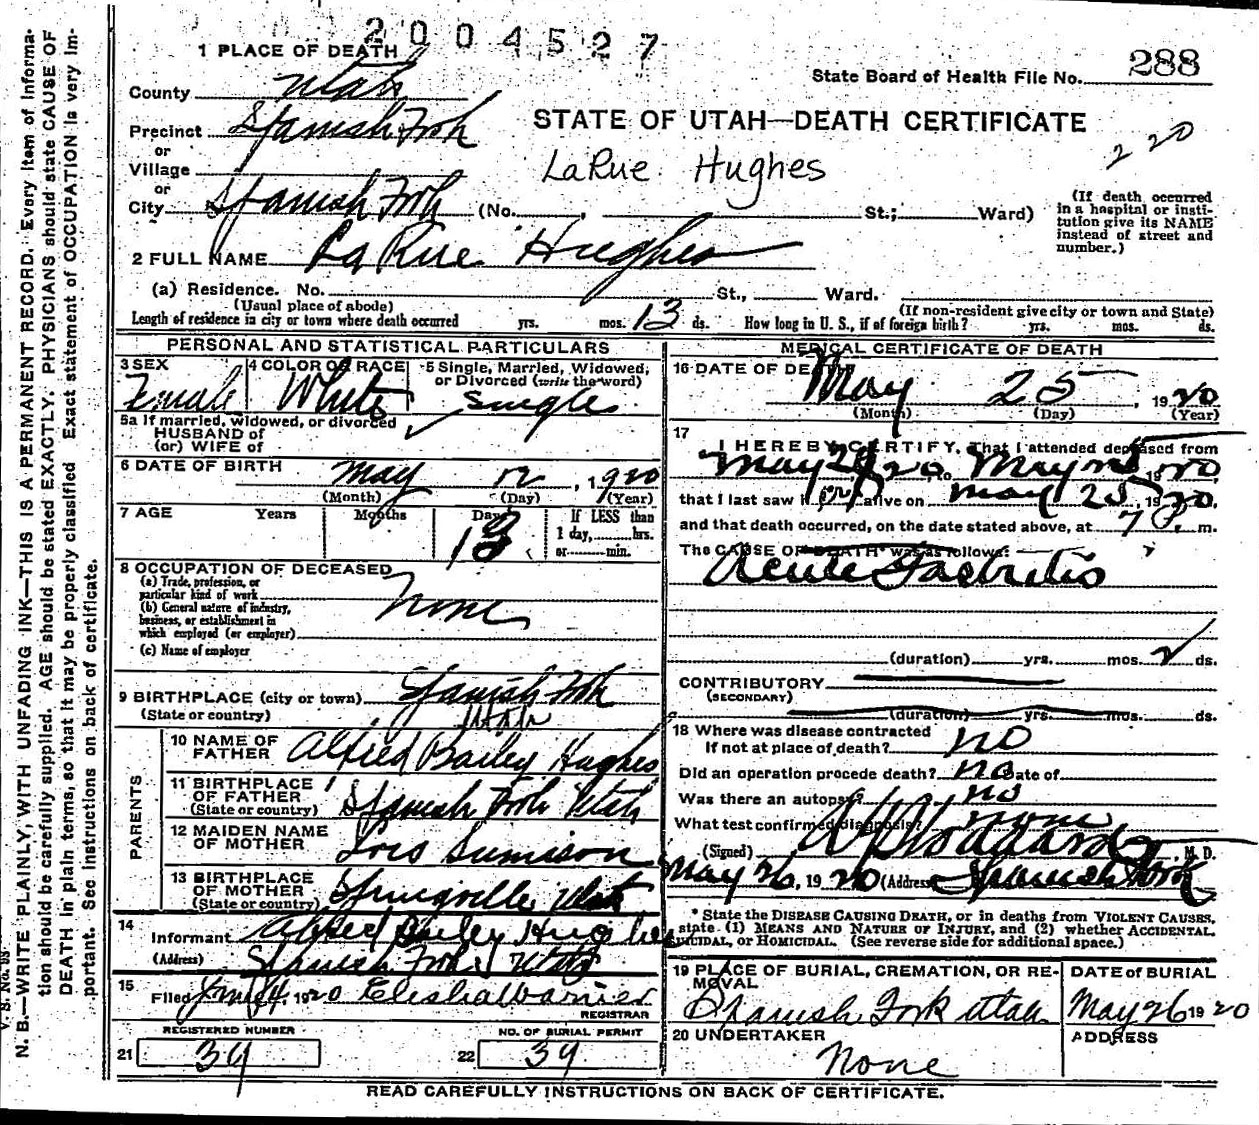 2004527
1 PLACE OF DEATH
State Board of Health File No. 288
County Utah
STATE OF UTAH—DEATH CERTIFICATE
220
Precinct Spanish Fork
or
Village
LaRue Hughes
or
City Spanish Fork (No. , St.; Ward)
(If death occurred in a hospital or institution give its NAME instead of street and number.)
2 FULL NAME LaRue Hughes
(a) Residence. No. St., Ward.
(Usual place of abode) (If non-resident give city or town and State)
Length of residence in city or town where death occurred yrs. mos. 13 ds. How long in U. S., if of foreign birth? yrs. mos. ds.
PERSONAL AND STATISTICAL PARTICULARS
3 SEX Female
4 COLOR OR RACE White
5 Single, Married, Widowed, or Divorced (write the word) Single
5a If married, widowed, or divorced
HUSBAND of
(or) WIFE of
6 DATE OF BIRTH May 12, 1920
(Month) (Day) (Year)
7 AGE Years Months Days 13
If LESS than 1 day, hrs. or min.
8 OCCUPATION OF DECEASED
(a) Trade, profession, or particular kind of work None
(b) General nature of industry, business, or establishment in which employed (or employer)
(c) Name of employer
9 BIRTHPLACE (city or town) Spanish Fork
(State or country) Utah
PARENTS
10 NAME OF FATHER Alfred Bailey Hughes
11 BIRTHPLACE OF FATHER (State or country) Spanish Fork Utah
12 MAIDEN NAME OF MOTHER Lois Sumison
13 BIRTHPLACE OF MOTHER (State or country) Springville Utah
14 Informant Alfred Bailey Hughes
(Address) Spanish Fork Utah
15 Filed 4, 1920 Elisha Warner
REGISTRAR
REGISTERED NUMBER NO. OF BURIAL PERMIT
21 39 22 39
MEDICAL CERTIFICATE OF DEATH
16 DATE OF DEATH May 25, 1920
(Month) (Day) (Year)
17 I HEREBY CERTIFY, That I attended deceased from
May 24, 1920, to May 25, 1920,
that I last saw her alive on May 25, 1920,
and that death occurred, on the date stated above, at 7 P. m.
The CAUSE OF DEATH* was as follows:
Acute Gastritis
(duration) yrs. mos. 2 ds.
CONTRIBUTORY
(SECONDARY)
(duration) yrs. mos. ds.
18 Where was disease contracted
If not at place of death? no
Did an operation procede death? no Date of
Was there an autopsy? no
What test confirmed diagnosis? none
(Signed) Stoddard, M. D.
May 26, 1920 (Address) Spanish Fork
* State the DISEASE CAUSING DEATH, or in deaths from VIOLENT CAUSES, state (1) MEANS AND NATURE OF INJURY, and (2) whether ACCIDENTAL, SUICIDAL, OR HOMICIDAL. (See reverse side for additional space.)
19 PLACE OF BURIAL, CREMATION, OR REMOVAL Spanish Fork Utah
DATE OF BURIAL May 26 1920
20 UNDERTAKER None
ADDRESS
READ CAREFULLY INSTRUCTIONS ON BACK OF CERTIFICATE.
V. S. No.
N. B.—WRITE PLAINLY, WITH UNFADING INK—THIS IS A PERMANENT RECORD. Every item of information should be carefully supplied. AGE should be stated EXACTLY. PHYSICIANS should state CAUSE OF DEATH in plain terms, so that it may be properly classified. Exact statement of OCCUPATION is very important. See instructions on back of certificate.